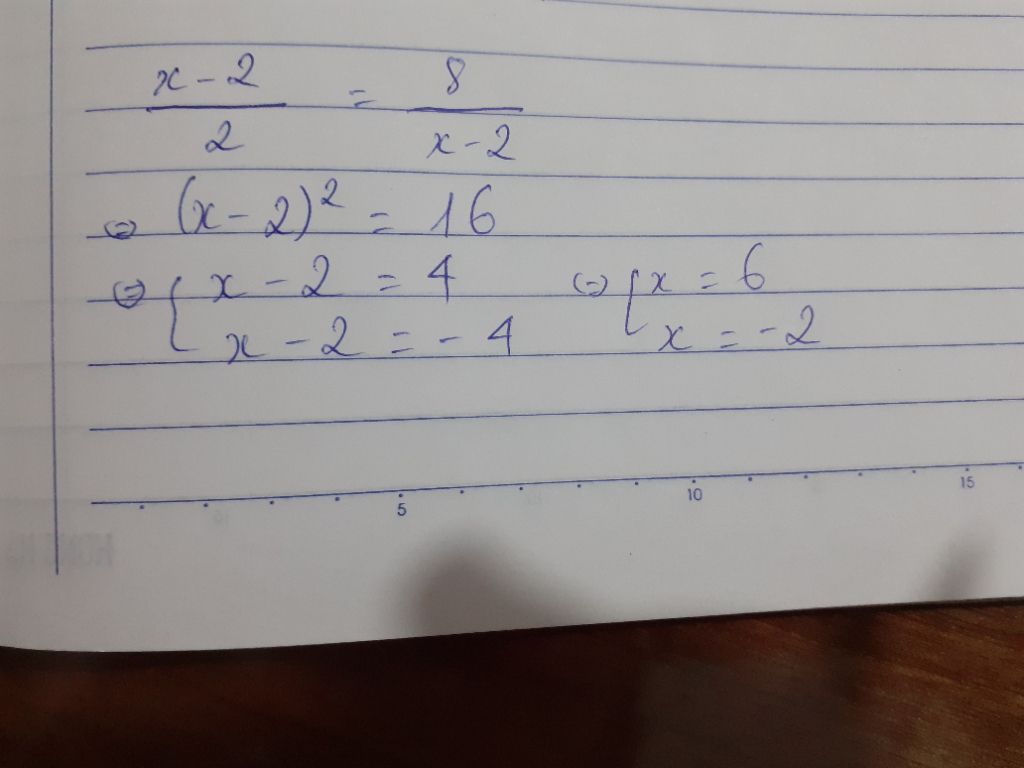 x - 2 / 2 = 8 / x - 2
⇔ (x - 2)² = 16
⇔ { x - 2 = 4 ⇔ [ x = 6
x - 2 = - 4 x = - 2
5 10 15